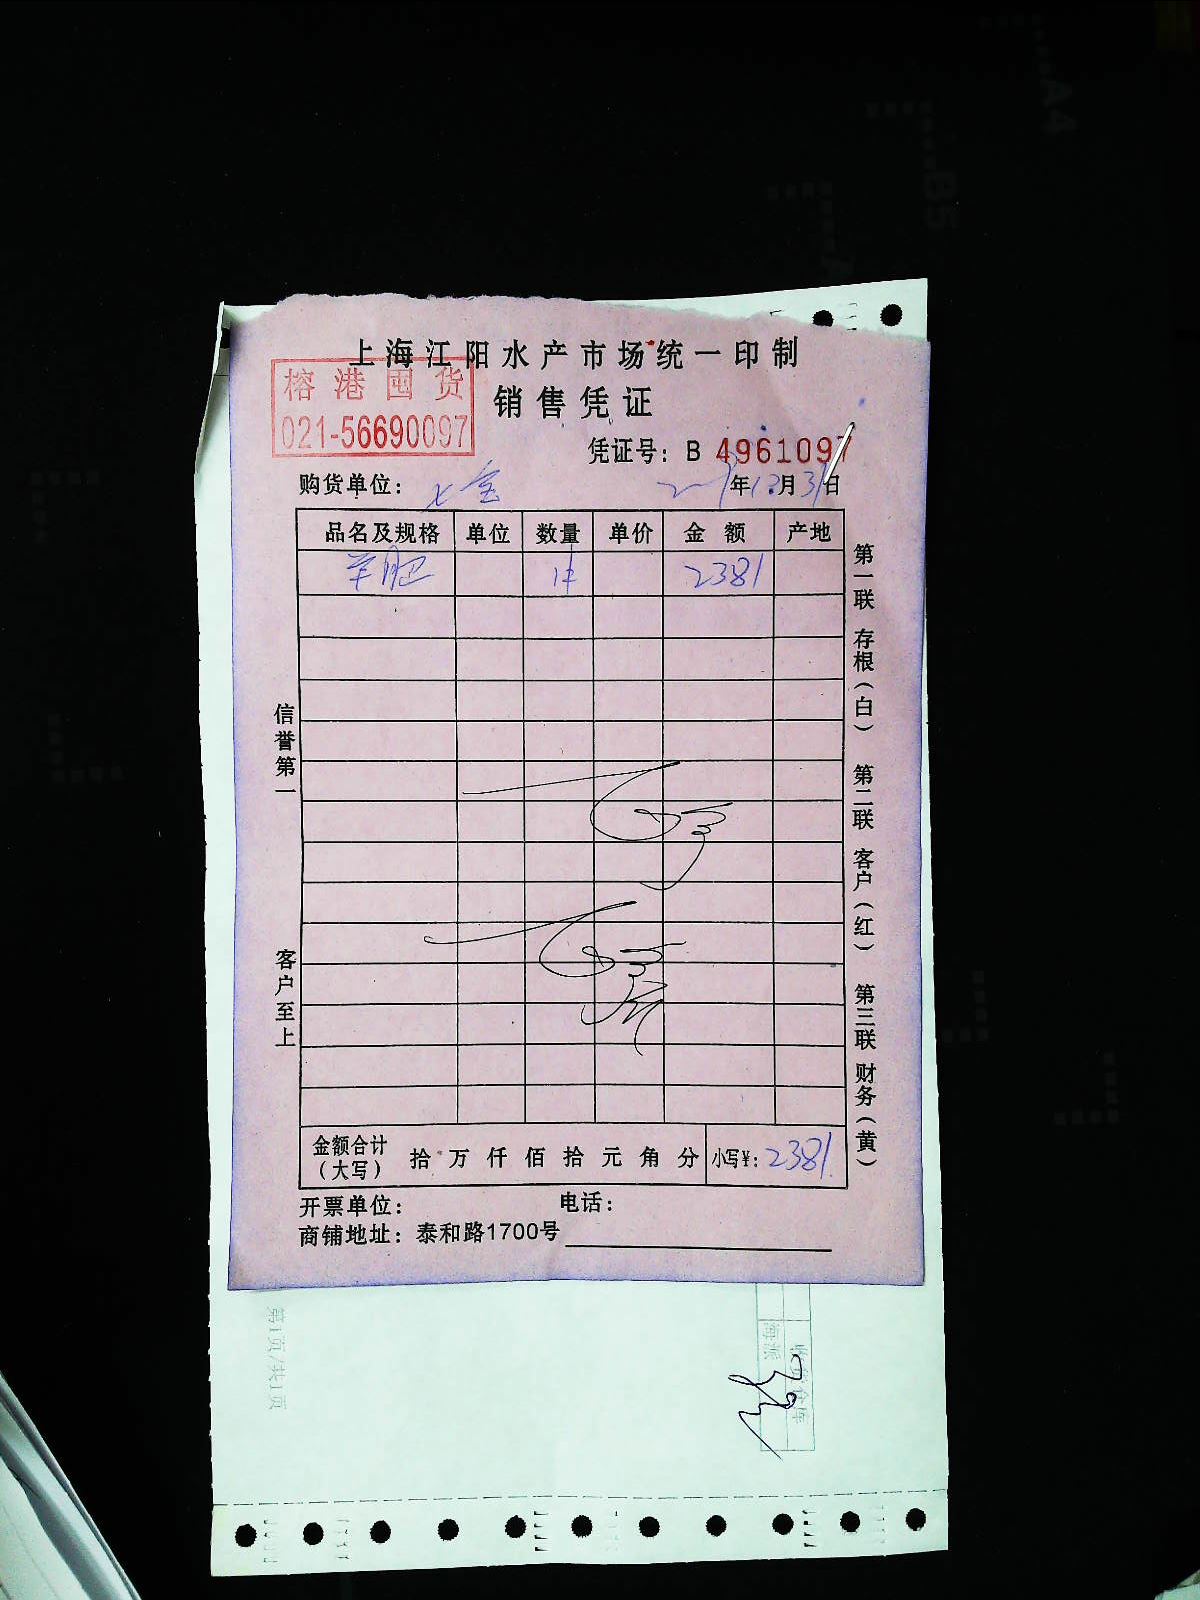 上海江阳水产市场统一印制
榕港囤货
销售凭证
021-56690097
凭证号: B 4961097
购货单位: 七宝
年12月31日
品名及规格 单位 数量 单价 金额 产地
羊肥 2381
信誉第一
客户至上
第一联 存根(白)
第二联 客户(红)
第三联 财务(黄)
金额合计(大写) 拾万仟佰拾元角分 小写¥: 2381
开票单位: 电话:
商铺地址: 泰和路1700号
第1页/共1页
A4
B5